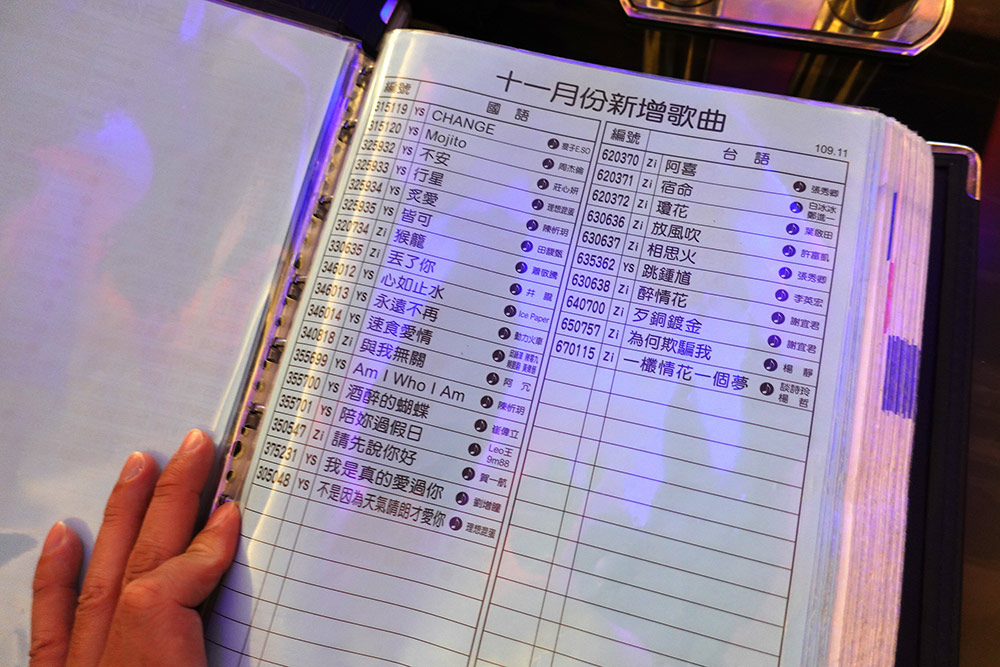 十一月份新增歌曲
109.11
編號 國語
315119 YS CHANGE 瘦子E.SO
315120 YS Mojito 周杰倫
325932 YS 不安 莊心妍
325933 YS 行星 理想混蛋
325934 YS 炙愛 陳忻玥
325935 YS 皆可 田馥甄
320734 Zi 猴籠 蕭敬騰
330635 Zi 丟了你 井朧
346012 YS 心如止水 Ice Paper
346013 YS 永遠不再 動力火車
346014 YS 速食愛情
340818 Zi 與我無關 阿冗
355699 YS Am I Who I Am 陳忻玥
355700 YS 酒醉的蝴蝶 崔偉立
355701 YS 陪妳過假日 Leo王 9m88
350547 Zi 請先說你好 賀一航
375231 YS 我是真的愛過你 劉增瞳
305048 YS 不是因為天氣晴朗才愛你 理想混蛋
編號 台語
620370 Zi 阿喜 張秀卿
620371 Zi 宿命 白冰冰 鄭進一
620372 Zi 瓊花 葉啟田
630636 Zi 放風吹 許富凱
630637 Zi 相思火 張秀卿
635362 YS 跳鍾馗 李英宏
630638 Zi 醉情花 謝宜君
640700 Zi 歹銅鍍金 謝宜君
650757 Zi 為何欺騙我 楊靜
670115 Zi 一欉情花一個夢 談詩玲 楊哲